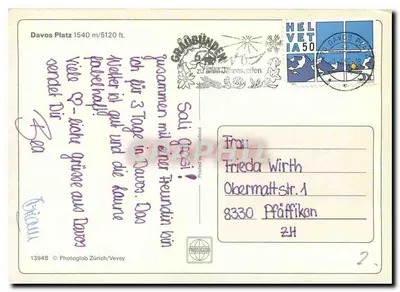 Davos Platz 1540 m/5120 ft.
GRAUBÜNDEN
HELVETIA 50
DAVOS PLATZ
Sali Gusi!
Zusammen mit einer Freundin bin
ich für 3 Tage in Davos. Das
Wetter ist gut und die Laune
fabelhaft!
Viele ♡-liche Grüsse aus Davos
sendet Dir
Bea
Frau
Frieda Wirth
Obermattstr. 1
8330 Pfäffikon
ZH
13948 © Photoglob Zürich/Vevey
2.-